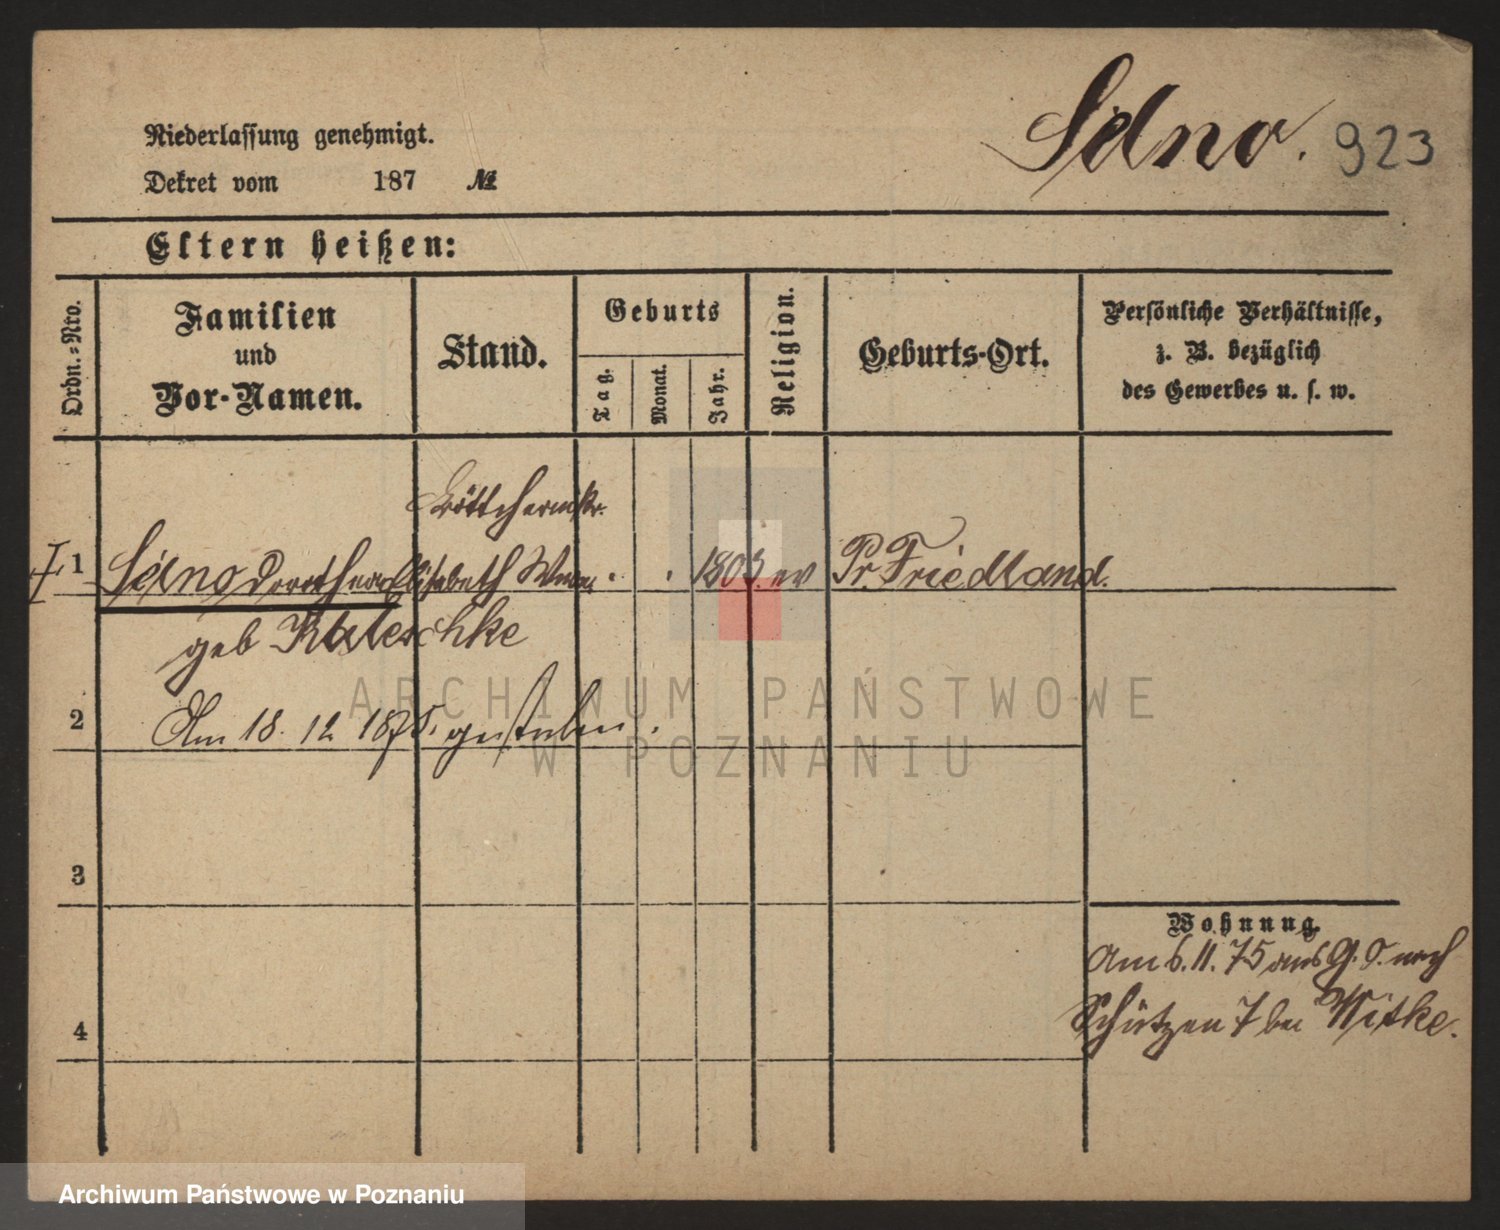 Sáno. 923
Niederlassung genehmigt.
Dekret vom 187 №
Eltern heißen:
Ordn.-Nro.
Familien
und
Vor-Namen.
Stand.
Geburts
Tag.
Monat.
Jahr.
Religion.
Geburts-Ort.
Persönliche Verhältnisse,
z. B. bezüglich
des Gewerbes u. s. w.
Böttchermstr.
1 Dorothea Elisabeth Wwe. 1803 ev Pr. Friedland.
geb
2 Am 18. 12 1875. gestorben.
3
Wohnung.
Am 6. 11. 75 aus G. S. nach
Schützen 7 bei Witke.
4
ARCHIWUM PAŃSTWOWE
W POZNANIU
Archiwum Państwowe w Poznaniu